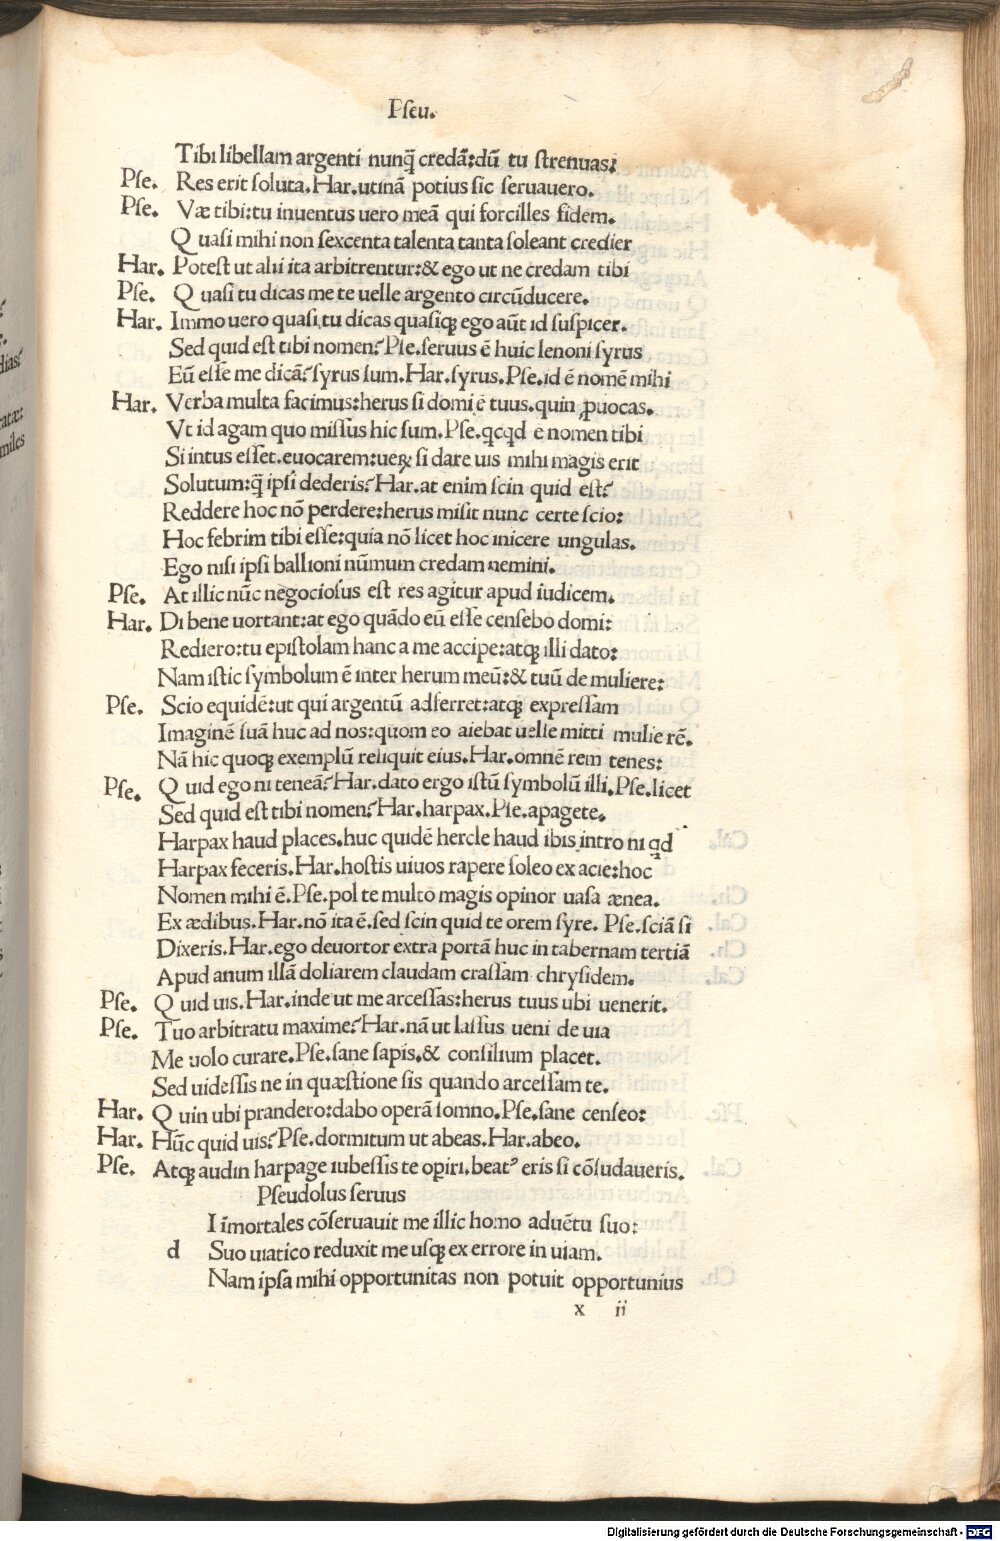 Pſeu.
Tibi libellam argenti nunq̃ credã:dũ tu ſtrenuas:
Pſe. Res erit ſoluta.Har.utinã potius ſic ſeruauero.
Pſe. Væ tibi:tu inuentus uero meã qui forcilles fidem.
Q uaſi mihi non ſexcenta talenta tanta ſoleant credier
Har. Poteſt ut alii ita arbitrentur:& ego ut ne credam tibi
Pſe. Q uaſi tu dicas me te uelle argento circũducere.
Har. Immo uero quaſi tu dicas quaſiqꝫ ego aũt id ſuſpicer.
Sed quid eſt tibi nomen?Pſe.ſeruus ē huic lenoni ſyrus
Eũ eſſe me dicã?ſyrus ſum.Har.ſyrus.Pſe.id ē nomē mihi
Har. Verba multa facimus:herus ſi domi ē tuus.quin ꝓuocas.
Vt id agam quo miſſus hic ſum.Pſe.qcqd ē nomen tibi
Si intus eſſet.euocarem:ueꝝ ſi dare uis mihi magis erit
Solutum:q̃ ipſi dederis?Har.at enim ſcin quid eſt?
Reddere hoc nõ perdere:herus miſit nunc certe ſcio:
Hoc febrim tibi eſſe:quia nõ licet hoc inicere ungulas.
Ego niſi ipſi ballioni nũmum credam nemini.
Pſe. At illic nũc negocioſus eſt res agitur apud iudicem.
Har. Di bene uortant:at ego quãdo eũ eſſe cenſebo domi:
Rediero:tu epiſtolam hanc a me accipe:atqꝫ illi dato:
Nam iſtic ſymbolum ē inter herum meũ:& tuũ de muliere:
Pſe. Scio equidē:ut qui argentũ adferret:atqꝫ expreſſam
Imaginē ſuã huc ad nos:quom eo aiebat uelle mitti mulie rē.
Nã hic quoqꝫ exemplũ reliquit eius.Har.omnē rem tenes:
Pſe. Q uid ego ni teneã?Har.dato ergo iſtũ ſymbolũ illi.Pſe.licet
Sed quid eſt tibi nomen?Har.harpax.Pſe.apagete.
Harpax haud places.huc quidē hercle haud ibis intro ni qd
Harpax feceris.Har.hoſtis uiuos rapere ſoleo ex acie:hoc
Nomen mihi ē.Pſe.pol te multo magis opinor uaſa ænea.
Ex ædibus.Har.nõ ita ē.ſed ſcin quid te orem ſyre. Pſe.ſciã ſi
Dixeris.Har.ego deuortor extra portã huc in tabernam tertiã
Apud anum illã doliarem claudam craſſam chryſidem.
Pſe. Q uid uis.Har.inde ut me arceſſas:herus tuus ubi uenerit.
Pſe. Tuo arbitratu maxime?Har.nã ut laſſus ueni de uia
Me uolo curare.Pſe.ſane ſapis.& conſilium placet.
Sed uideſſis ne in quæſtione ſis quando arceſſam te.
Har. Q uin ubi prandero:dabo operã ſomno.Pſe.ſane cenſeo:
Har. Hũc quid uis?Pſe.dormitum ut abeas.Har.abeo.
Pſe. Atqꝫ audin harpage iubeſſis te opiri.beatꝰ eris ſi cõſudaueris.
Pſeudolus ſeruus
I ĩmortales cõſeruauit me illic homo aduētu ſuo:
d Suo uiatico reduxit me uſqꝫ ex errore in uiam.
Nam ipſa mihi opportunitas non potuit opportunius
x ii
Digitalisierung gefördert durch die Deutsche Forschungsgemeinschaft - DFG